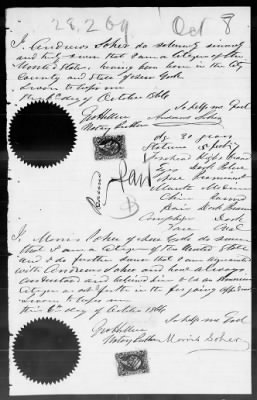 28,269 Oct 8
I, Andrews Soher do solemnly sincerely
and truly swear that I am a Citizen of the
United States, having been born in the City
County and State of New York
Sworn to before me
this 6th day of October 1864
So help me God
Andrews Soher
Notary Public
Age 21 years
Stature 5
Forehead High
Eyes Dark
Nose Prominent
Mouth Medium
Chin Round
Hair Dark Brown
Complexion Dark
Face Oval
I, Morris Soher of New York do swear
that I am a Citizen of the United States
and I do further swear that I am acquainted
with Andrews Soher and have always
understood and believed him to be an American
Citizen as set forth in the foregoing affidavit
Sworn to before me
this 6th day of October 1864
So help me God
Notary Public Morris Soher